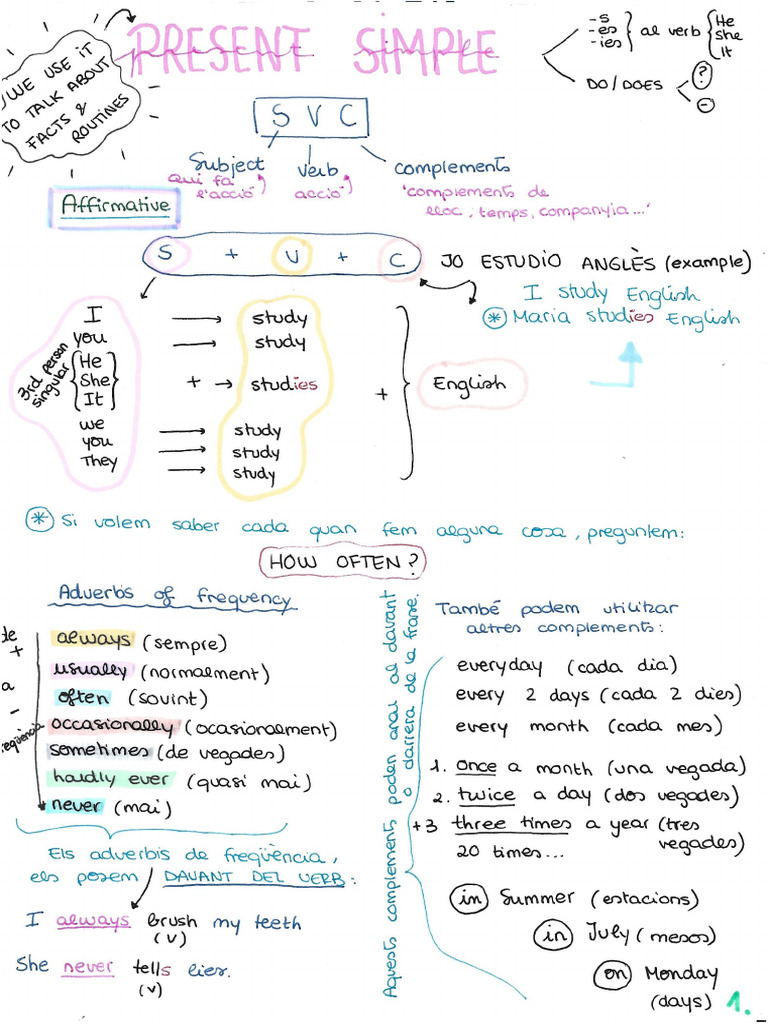 PRESENT SIMPLE
-s
-es
-ies
al verb
He
She
It
DO/DOES
?
-
WE USE IT
TO TALK ABOUT
FACTS &
ROUTINES
S V C
Subject
verb
complements
qui fa
l'acció
acció
"complements de
lloc, temps, companyia..."
Affirmative
S + V + C
JO ESTUDIO ANGLÈS (example)
I study English
* Maria studies English
I → study
you → study
3rd person
singular
He
She
It
+ → studies
we → study
you → study
They → study
+
English
* Si volem saber cada quan fem alguna cosa, preguntem:
HOW OFTEN?
Adverbs of frequency
de
+
a
-
freqüència
always (sempre)
usually (normalment)
often (sovint)
occasionally (ocasionalment)
sometimes (de vegades)
hardly ever (quasi mai)
never (mai)
Els adverbis de freqüència,
els posem DAVANT DEL VERB:
I always brush my teeth
(v)
She never tells lies.
(v)
Aquests complements poden anar al davant
o darrera de la frase.
També podem utilitzar
altres complements:
everyday (cada dia)
every 2 days (cada 2 dies)
every month (cada mes)
1. once a month (una vegada)
2. twice a day (dos vegades)
+3 three times a year (tres
vegades)
20 times...
in Summer (estacions)
in July (mesos)
on Monday
(days)
1.